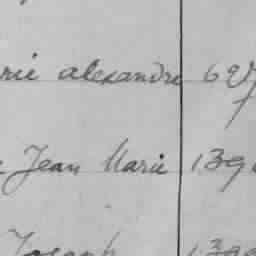 rie alexandre 627
Jean Marie 139
Joseph 139